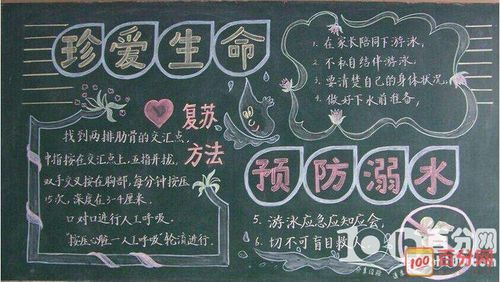 珍爱生命
复苏
方法
找到两排肋骨的交汇点,
中指按在交汇点上,五指并拢,
双手交叉按在胸部,每分钟按压
15次,深度在3-4厘米,
口对口进行人工呼吸,
"按压心脏—人工呼吸"轮流进行.
1.在家长陪同下游泳,
2.不私自结伴游泳,
3.要清楚自己的身体状况,
4.做好下水前准备,
预防溺水
5.游泳应急应知应会,
6.切不可盲目救人
100
百分网